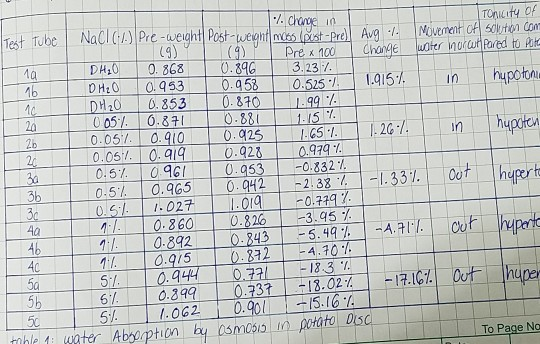 % Change in Tonicity of
Test Tube NaCl (%) Pre-weight Post-weight mass (post-Pre) Avg % Movement of solution Com
(g) (g) Pre x 100 Change water in or out pared to Pota
1a DH2O 0.868 0.896 3.23%
1b DH2O 0.953 0.958 0.525% 1.915% in hypotoni
1c DH2O 0.853 0.870 1.99%
2a 0.05% 0.871 0.881 1.15%
2b 0.05% 0.910 0.925 1.65% 1.26% in hypoten
2c 0.05% 0.919 0.928 0.979%
3a 0.5% 0.961 0.953 -0.832%
3b 0.5% 0.965 0.942 -2.38% -1.33% Out hyperto
3c 0.5% 1.027 1.019 -0.779%
4a 1% 0.860 0.826 -3.95%
4b 1% 0.892 0.843 -5.49% -4.71% Out hyperto
4c 1% 0.915 0.872 -4.70%
5a 5% 0.944 0.771 -18.3%
5b 5% 0.899 0.737 -18.02% -17.16% Out hyper
5c 5% 1.062 0.901 -15.16%
table 1: water Absorption by osmosis in potato Disc
To Page No